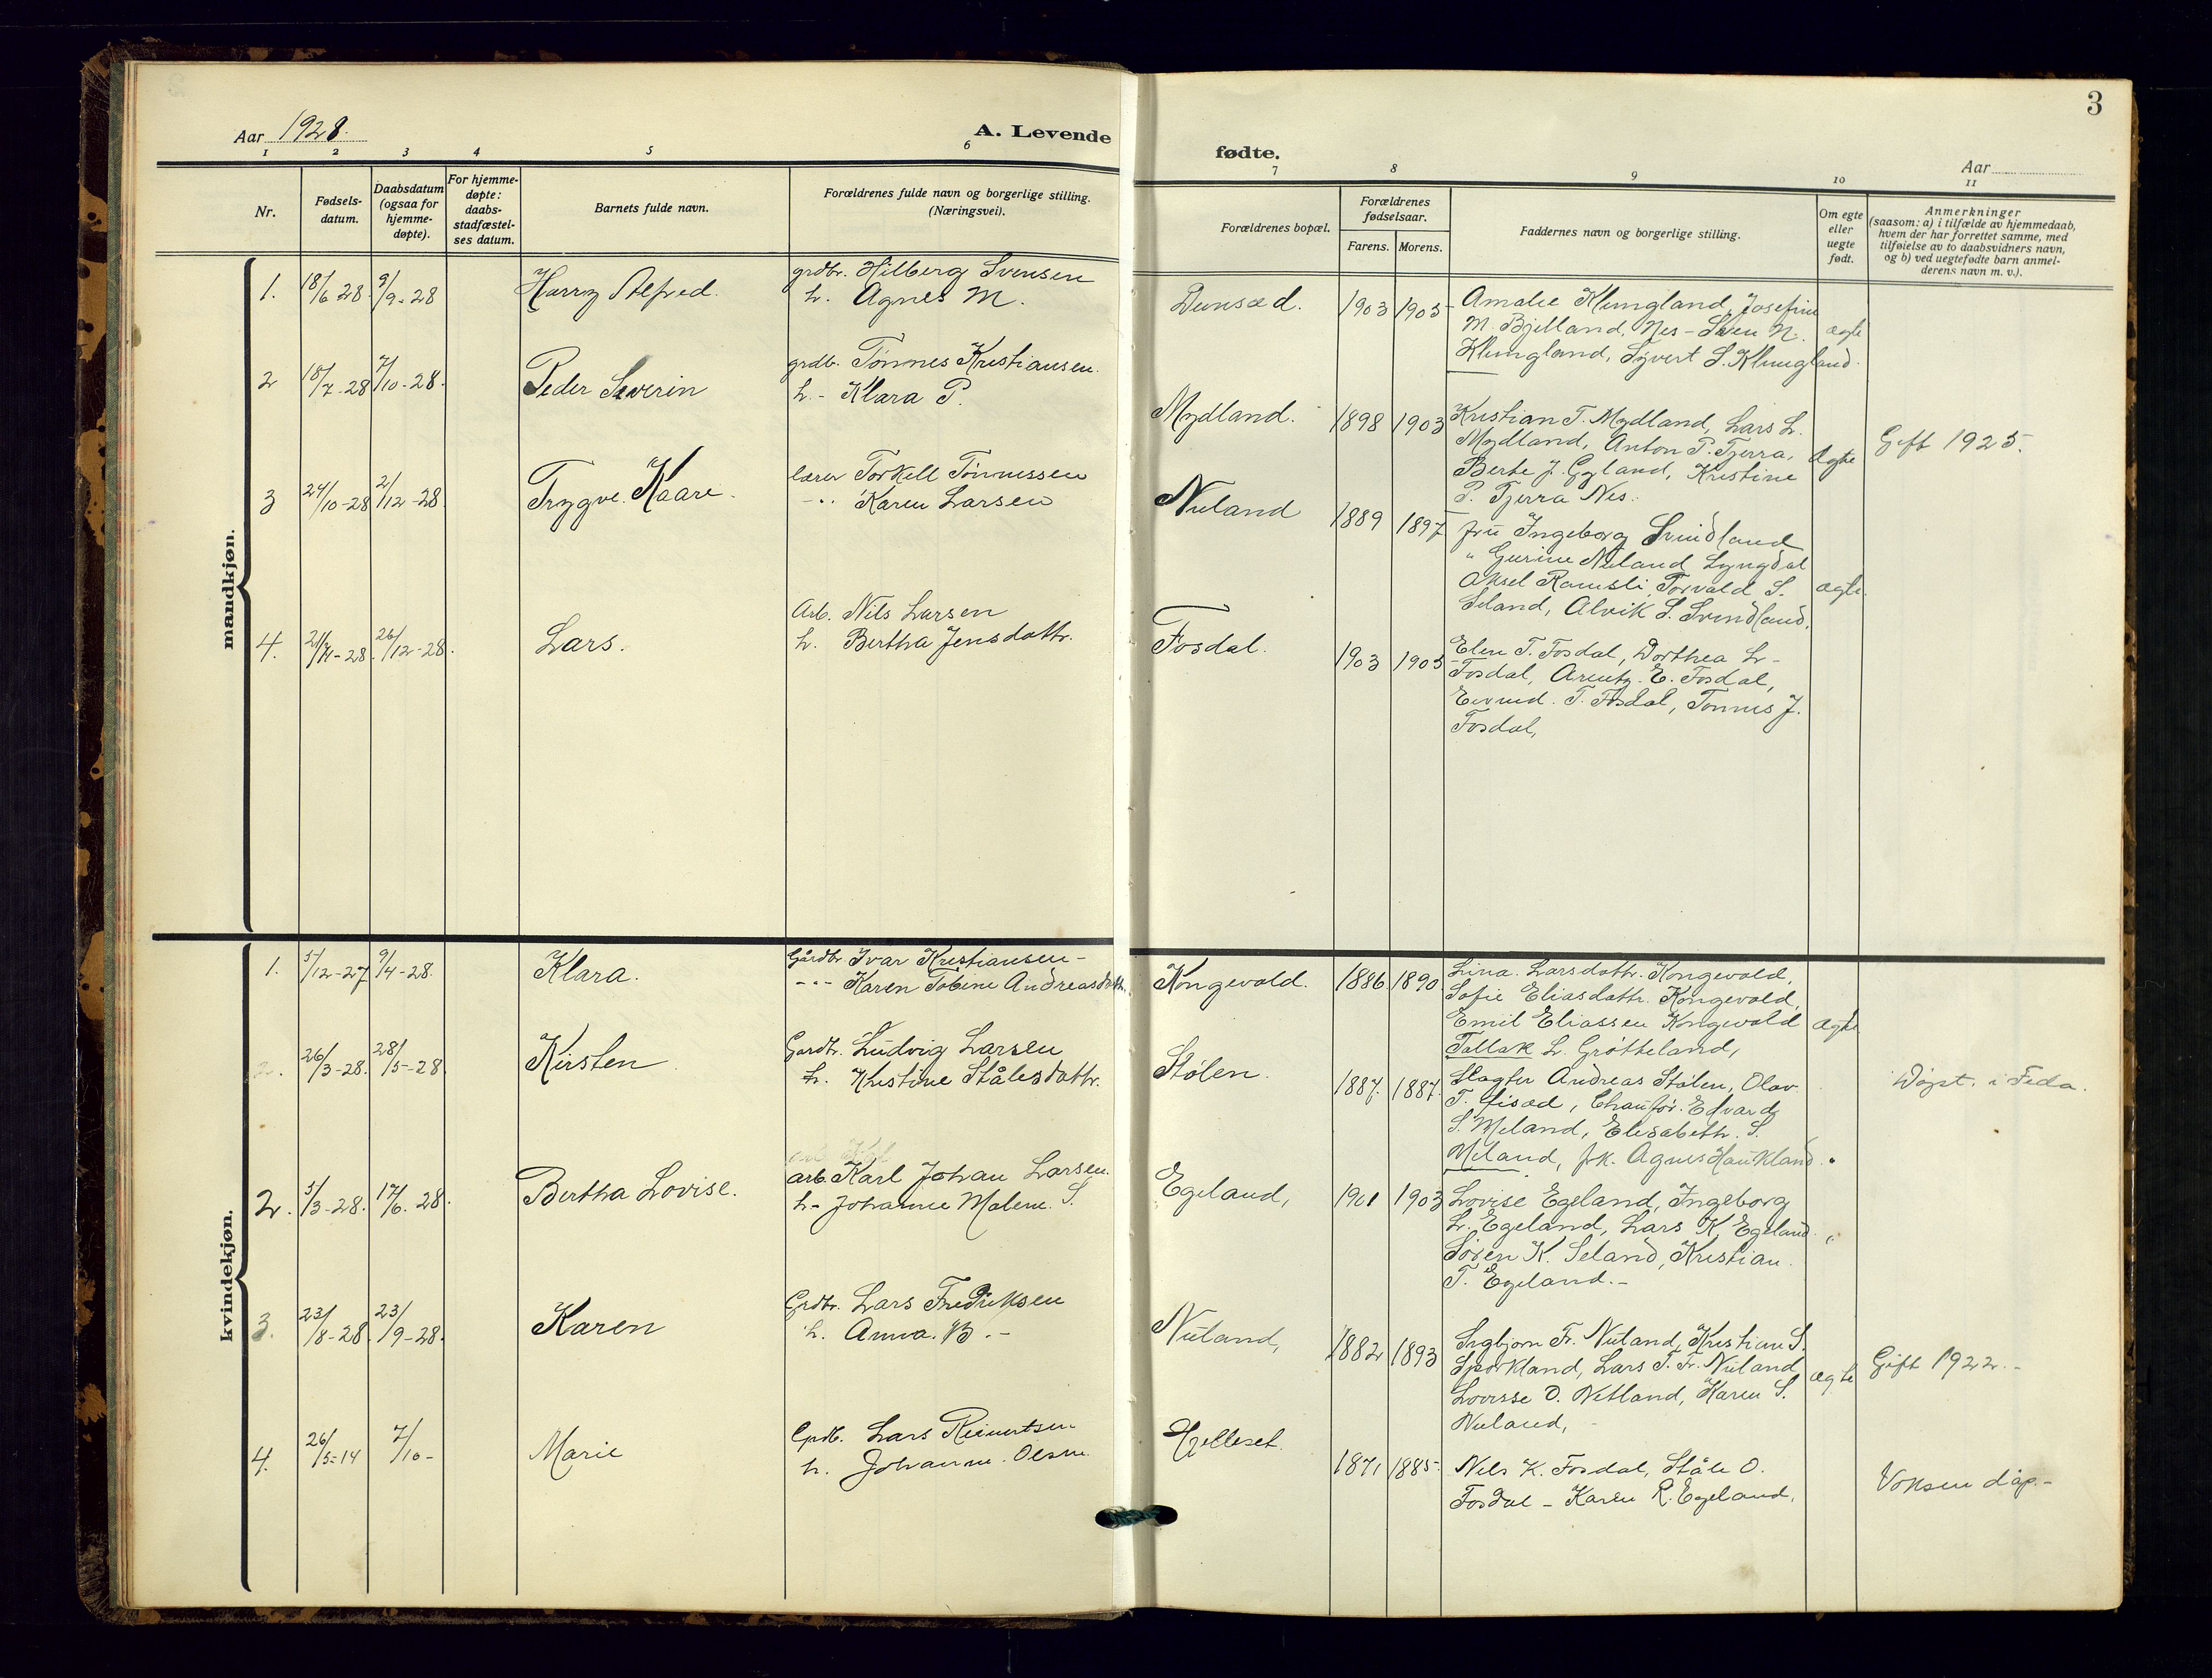 3
Aar 1928.
A. Levende
fødte.
Aar
1 2 3 4 5 6
7 8 9 10 11
Nr.
Fødsels-
datum.
Daabsdatum
(ogsaa for
hjemme-
døpte).
For hjemme-
døpte:
daabs-
stadfæstel-
ses datum.
Barnets fulde navn.
Forældrenes fulde navn og borgerlige stilling.
(Næringsvei).
Forældrenes bopæl.
Forældrenes
fødselsaar.
Farens. Morens.
Faddernes navn og borgerlige stilling.
Om egte
eller
uegte
født.
Anmerkninger
(saasom: a) i tilfælde av hjemmedaab,
hvem der har forrettet samme, med
tilføielse av to daabsvidners navn,
og b) ved uegtefødte barn anmel-
derens navn m. v.).
mandkjøn.
1. 18/6 28 9/9-28 Harry Alfred. grdbr. Hilberg Svensen
h. Agnes M.
Dunsæd. 1903 1905 Amalie Klungland, Josefine
M. Bjelland, Nes - Sven N.
Klungland, Syvert S. Klungland.
ægte
2 18/7-28 7/10-28. Peder Severin grdb. Tønnes Kristiansen.
h.- Klara P.
Mydland. 1898 1903 Kristian T. Mydland, Lars L.
Mydland, Anton P. Tjerra,
Berte J. Gyland, Kristine
P. Tjerra Nes.
ægte Gift 1925.
3 24/10-28 2/12-28 Trygve Kaare. lærer Torkell Tønnessen
-" Karen Larsen
Nuland 1889 1897 fru Ingeborg Svindland
" Gurine Nuland Lyngdal
Aksel Ramsli, Torvald S.
Seland, Alvik S. Svindland.
ægte.
4. 21/11-28. 26/12-28. Lars. Arb. Nils Larsen
h. Bertha Jensdattr.
Fosdal. 1903 1905 Elen T. Fosdal, Dorthea L-
Fosdal, Arentz. E. Fosdal,
Eivind. T. Fosdal, Tønnes J.
Fosdal,
kvindekjøn.
1. 5/12-27 9/4-28. Klara. Gårdbr Ivar Kristiansen-
-"- Karen Tobine Andreasdattr.
Kongevold. 1886 1890 Lina. Larsdattr. Kongevold,
Sofie Eliasdattr. Kongevold,
Emil Eliassen Kongevold
Tallak L. Grøtteland,
ægte
2. 26/3-28. 28/5-28 Kirsten Gardbr. Ludvig Larsen
h. Kristine Stålesdattr.
Stølen. 1887. 1887. Slagter Andreas Stølen, Olav
T. Lisæd, Chaufør. Edvard
S. Meland, Elisabeth. S.
Meland, frk. Agnes Haukland. "
Døpt. i Feda.
2. 5/3-28. 17/6. 28. Bertha Lovise. arb. Karl Johan Larsen.
h- Johanne Malene. S.
Egeland, 1901 1903 Lovise Egeland, Ingeborg
L. Egeland, Lars K. Egeland
Søren K. Seland, Kristian
T. Egeland.-
"
3. 23/8-28. 23/9-28. Karen Grdbr. Lars Fredriksen
h. Anna. B.-
Nuland, 1882 1893 Sigbjørn Fr. Nuland, Kristian S.
Sporkland, Lars T. Fr. Nuland
Lovisse O. Netland, Karen S.
Nuland, -
ægte Gift 1922.-
4. 26/5-14 7/10- Marie Grdb. Lars Reinertsen
h. Johanne. Olsen.
Hjelleset. 1871 1885. Nils K. Fosdal, Ståle O.
Fosdal - Karen R. Egeland.
Voksen dåp.-